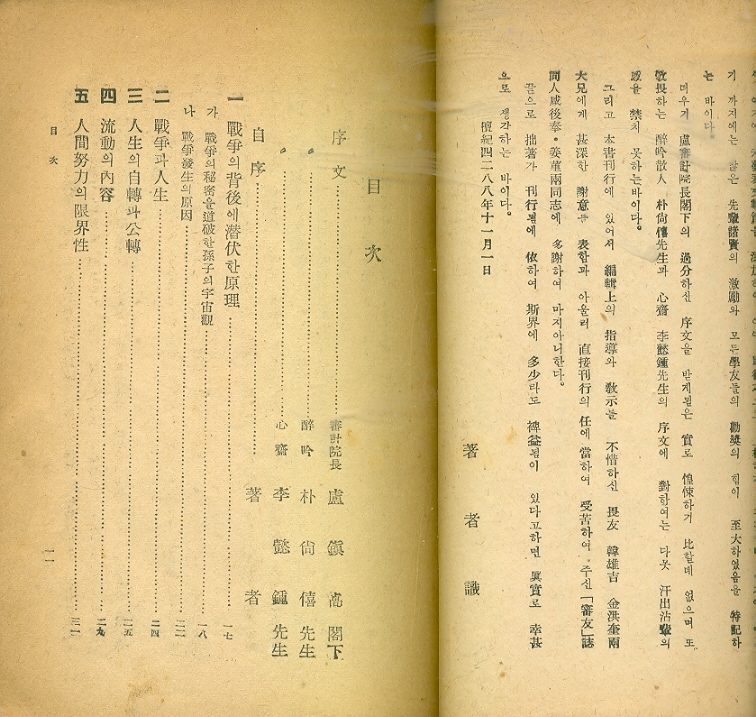 기 까지에는 많은 先輩諸賢의 激勵와 모든學友들의 勸奬의 힘이 至大하였음을 特記하
는 바이다.
더우기 盧審計院長閣下의 過分하신 序文을 받게됨은 實로 惶悚하기 比할데 없으며 또
敬畏하는 醉吟散人 朴尙僖先生과 心齋 李懿鍾先生의 序文에 對하여는 다못 汗出沾背의
感을 禁치 못하는바이다.
그리고 本書刊行에 있어서 編輯上의 指導와 敎示를 不惜하신 畏友 韓雄吉 金洪奎兩
大兄에게 甚深한 謝意를 表함과 아울러 直接刊行의 任에 當하여 受苦하여 주신「審友」誌
同人咸後奉·姜菫兩同志에 多謝하여 마지아니한다.
끝으로 拙著가 刊行됨에 依하여 斯界에 多少라도 裨益됨이 있다고하면 眞實로 幸甚
으로 생각하는 바이다.
檀紀四二八八年十一月一日
著者識
目次
序文 審計院長 盧 鎭 髙 閣下
〃 醉吟 朴 尙 僖 先生
〃 心齋 李 懿 鍾 先生
自序 著者
一 戰爭의 背後에 潜伏한 原理 一七
가 戰爭의 秘密을 道破한 孫子의 宇宙觀 一八
나 戰爭發生의 原因 二二
二 戰爭과 人生 二四
三 人生의 自轉과 公轉 二五
四 流動의 內容 二九
五 人間努力의 限界性 三一
目次
一一